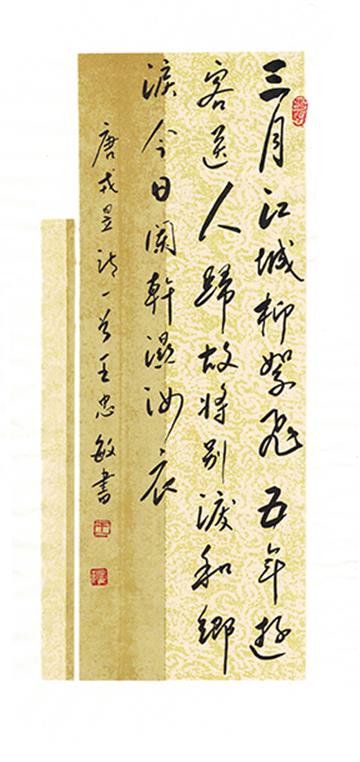 三月江城柳絮飛五年遊
客送人歸故將別淚和鄉
淚今日闌幹濕汝衣
唐戎昱詩一首王忠敏書